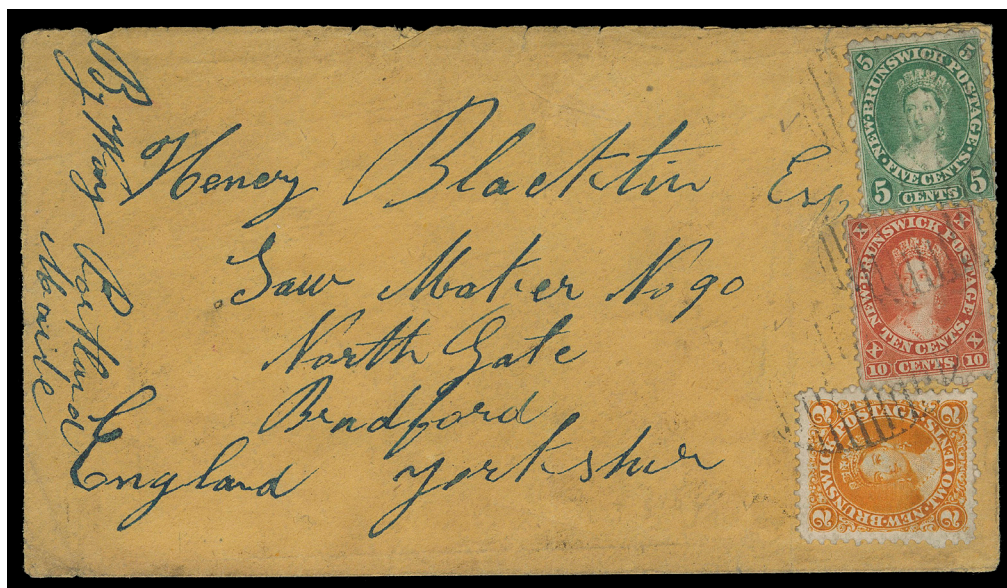 By Way Portland
Maine
Henery Blacktin Esq
Saw Maker No 90
North Gate
Bradford
England Yorkshir
5 5
NEW·BRUNSWICK POSTAGE·
FIVE CENTS
5 CENTS 5
X X
NEW·BRUNSWICK POSTAGE·
TEN CENTS
X X
10 CENTS 10
2 2
NEW·BRUNSWICK·POSTAGE
TWO CENTS
2 2